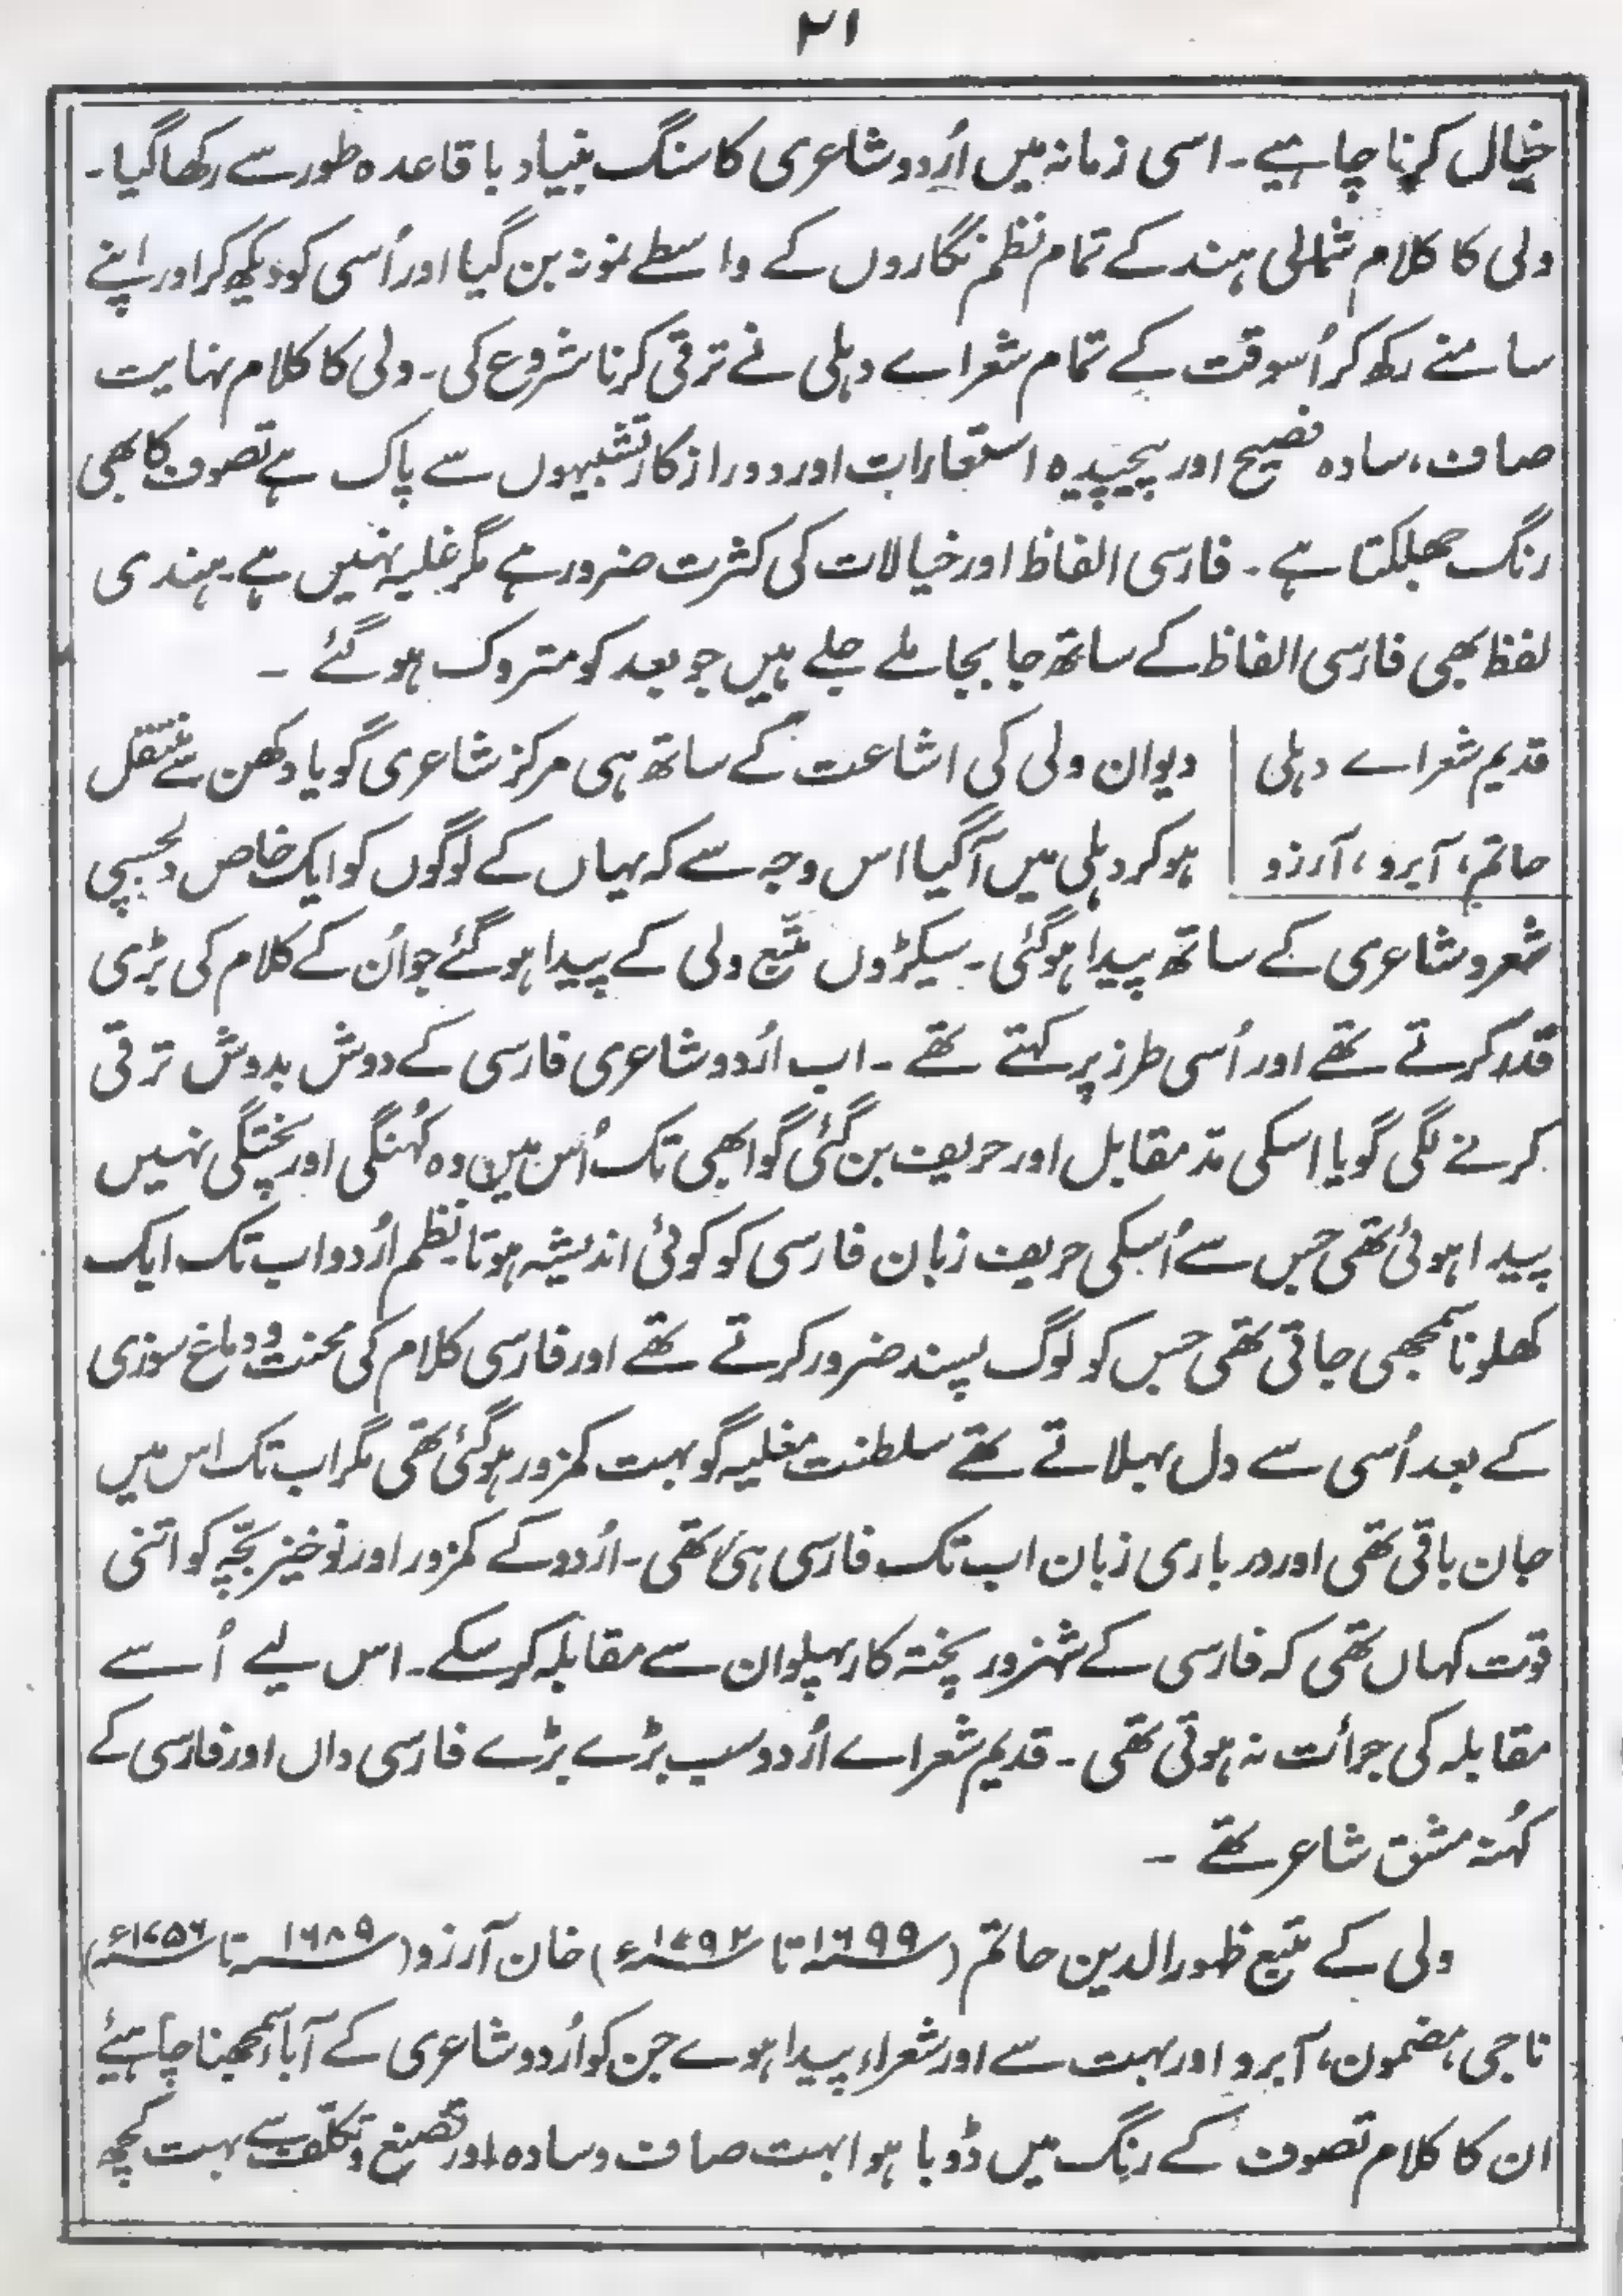 ۲۱
خیال کرنا چاہیے۔ اسی زمانہ میں اُردو شاعری کا سنگ بنیاد با قاعدہ طور سے رکھا گیا۔
ولی کا کلام شمالی ہند کے تمام نظم نگاروں کے واسطے نمونہ بن گیا اور اُسی کو دیکھ کر اور اپنے
سامنے رکھ کر اُسوقت کے تمام شعراے دہلی نے ترقی کرنا شروع کی۔ ولی کا کلام نہایت
صاف، سادہ فصیح اور پیچیدہ استعارات اور دور از کار تشبیہوں سے پاک ہے تصوف کا بھی
رنگ جھلکتا ہے۔ فارسی الفاظ اور خیالات کی کثرت ضرور ہے مگر غلبہ نہیں ہے۔ ہندی
لفظ بھی فارسی الفاظ کے ساتھ جا بجا ملے جلے ہیں جو بعد کو متروک ہو گئے ۔
قدیم شعراے دہلی
حاتم، آبرو، آرزو
دیوان ولی کی اشاعت کے ساتھ ہی مرکز شاعری گویا دکھن سے منتقل
ہو کر دہلی میں آگیا اس وجہ سے کہ یہاں کے لوگوں کو ایک خاص دلچسپی
شعر و شاعری کے ساتھ پیدا ہو گئی۔ سیکڑوں متبع ولی کے پیدا ہو گئے جو اُن کے کلام کی بڑی
قدر کرتے تھے اور اُسی طرز پر کہتے تھے ۔ اب اُردو شاعری فارسی کے دوش بدوش ترقی
کرنے لگی گویا اسکی مد مقابل اور حریف بن گئی گو ابھی تک اُس میں وہ کُہنگی اور پختگی نہیں
پیدا ہوئی تھی جس سے اُسکی حریف زبان فارسی کو کوئی اندیشہ ہوتا۔ نظم اُردو اب تک ایک
کھلونا سمجھی جاتی تھی جس کو لوگ پسند ضرور کرتے تھے اور فارسی کلام کی محنت و دماغ سوزی
کے بعد اُسی سے دل بہلاتے تھے سلطنت مغلیہ گو بہت کمزور ہو گئی تھی مگر اب تک اس میں
جان باقی تھی اور درباری زبان اب تک فارسی ہی تھی۔ اُردو کے کمزور اور نوخیز بچّہ کو اتنی
قوت کہاں تھی کہ فارسی کے شہزور پختہ کار پہلوان سے مقابلہ کر سکے۔ اس لیے اُسے
مقابلہ کی جرائت نہ ہوتی تھی ۔ قدیم شعراے اُردو سب بڑے بڑے فارسی داں اور فارسی کے
کُہنہ مشق شاعر تھے ۔
ولی کے متبع ظہورالدین حاتم (۱۶۹۹ تا ۱۷۹۲ء) خان آرزو (۱۶۸۹ تا ۱۷۵۶ء)
ناجی، مضمون، آبرو اور بہت سے اور شعراء پیدا ہوے جن کو اُردو شاعری کے آباء سمجھنا چاہئیے
ان کا کلام تصوف کے رنگ میں ڈوبا ہوا بہت صاف و سادہ اور تصنع و تکلف سے بہت کچھ